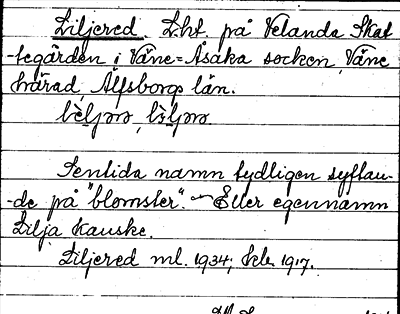 Liljered. L.ht. på Velanda Skat-
-tegården i Väne-Åsaka socken, Väne
härad, Älfsborgs län.
Sentida namn tydligen syftan-
-de på "blomster". — Eller egennamn
Lilja kanske.
Liljered ml. 1934; hlr. 1917.